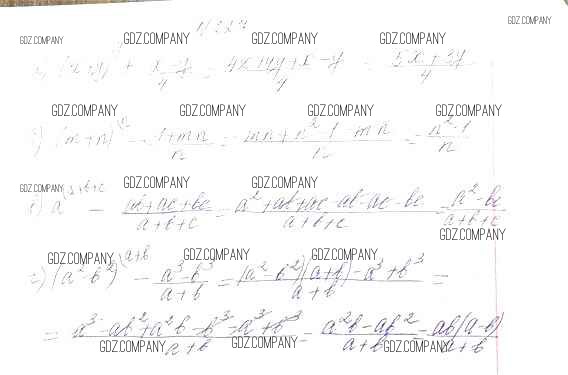 GDZ.COMPANY
№ 227
GDZ.COMPANY GDZ.COMPANY GDZ.COMPANY GDZ.COMPANY
(x+y) + x-y/4 = 4x+4y+x-y/4 = 5x+3y/4
GDZ.COMPANY GDZ.COMPANY GDZ.COMPANY GDZ.COMPANY
(m+n)\n - 1+mn/n = mn+n²-1-mn/n = n²-1/n
GDZ.COMPANY GDZ.COMPANY GDZ.COMPANY
a\a+b+c - ab+ac+bc/a+b+c = a²+ab+ac-ab-ac-bc/a+b+c = a²-bc/a+b+c
GDZ.COMPANY
GDZ.COMPANY GDZ.COMPANY GDZ.COMPANY
г) (a²-b²)\a+b - a³-b³/a+b = (a²-b²)(a+b)-a³+b³/a+b =
= a³-ab²+a²b-b³-a³+b³/a+b = a²b-ab²/a+b = ab(a-b)/a+b
GDZ.COMPANY GDZ.COMPANY GDZ.COMPANY